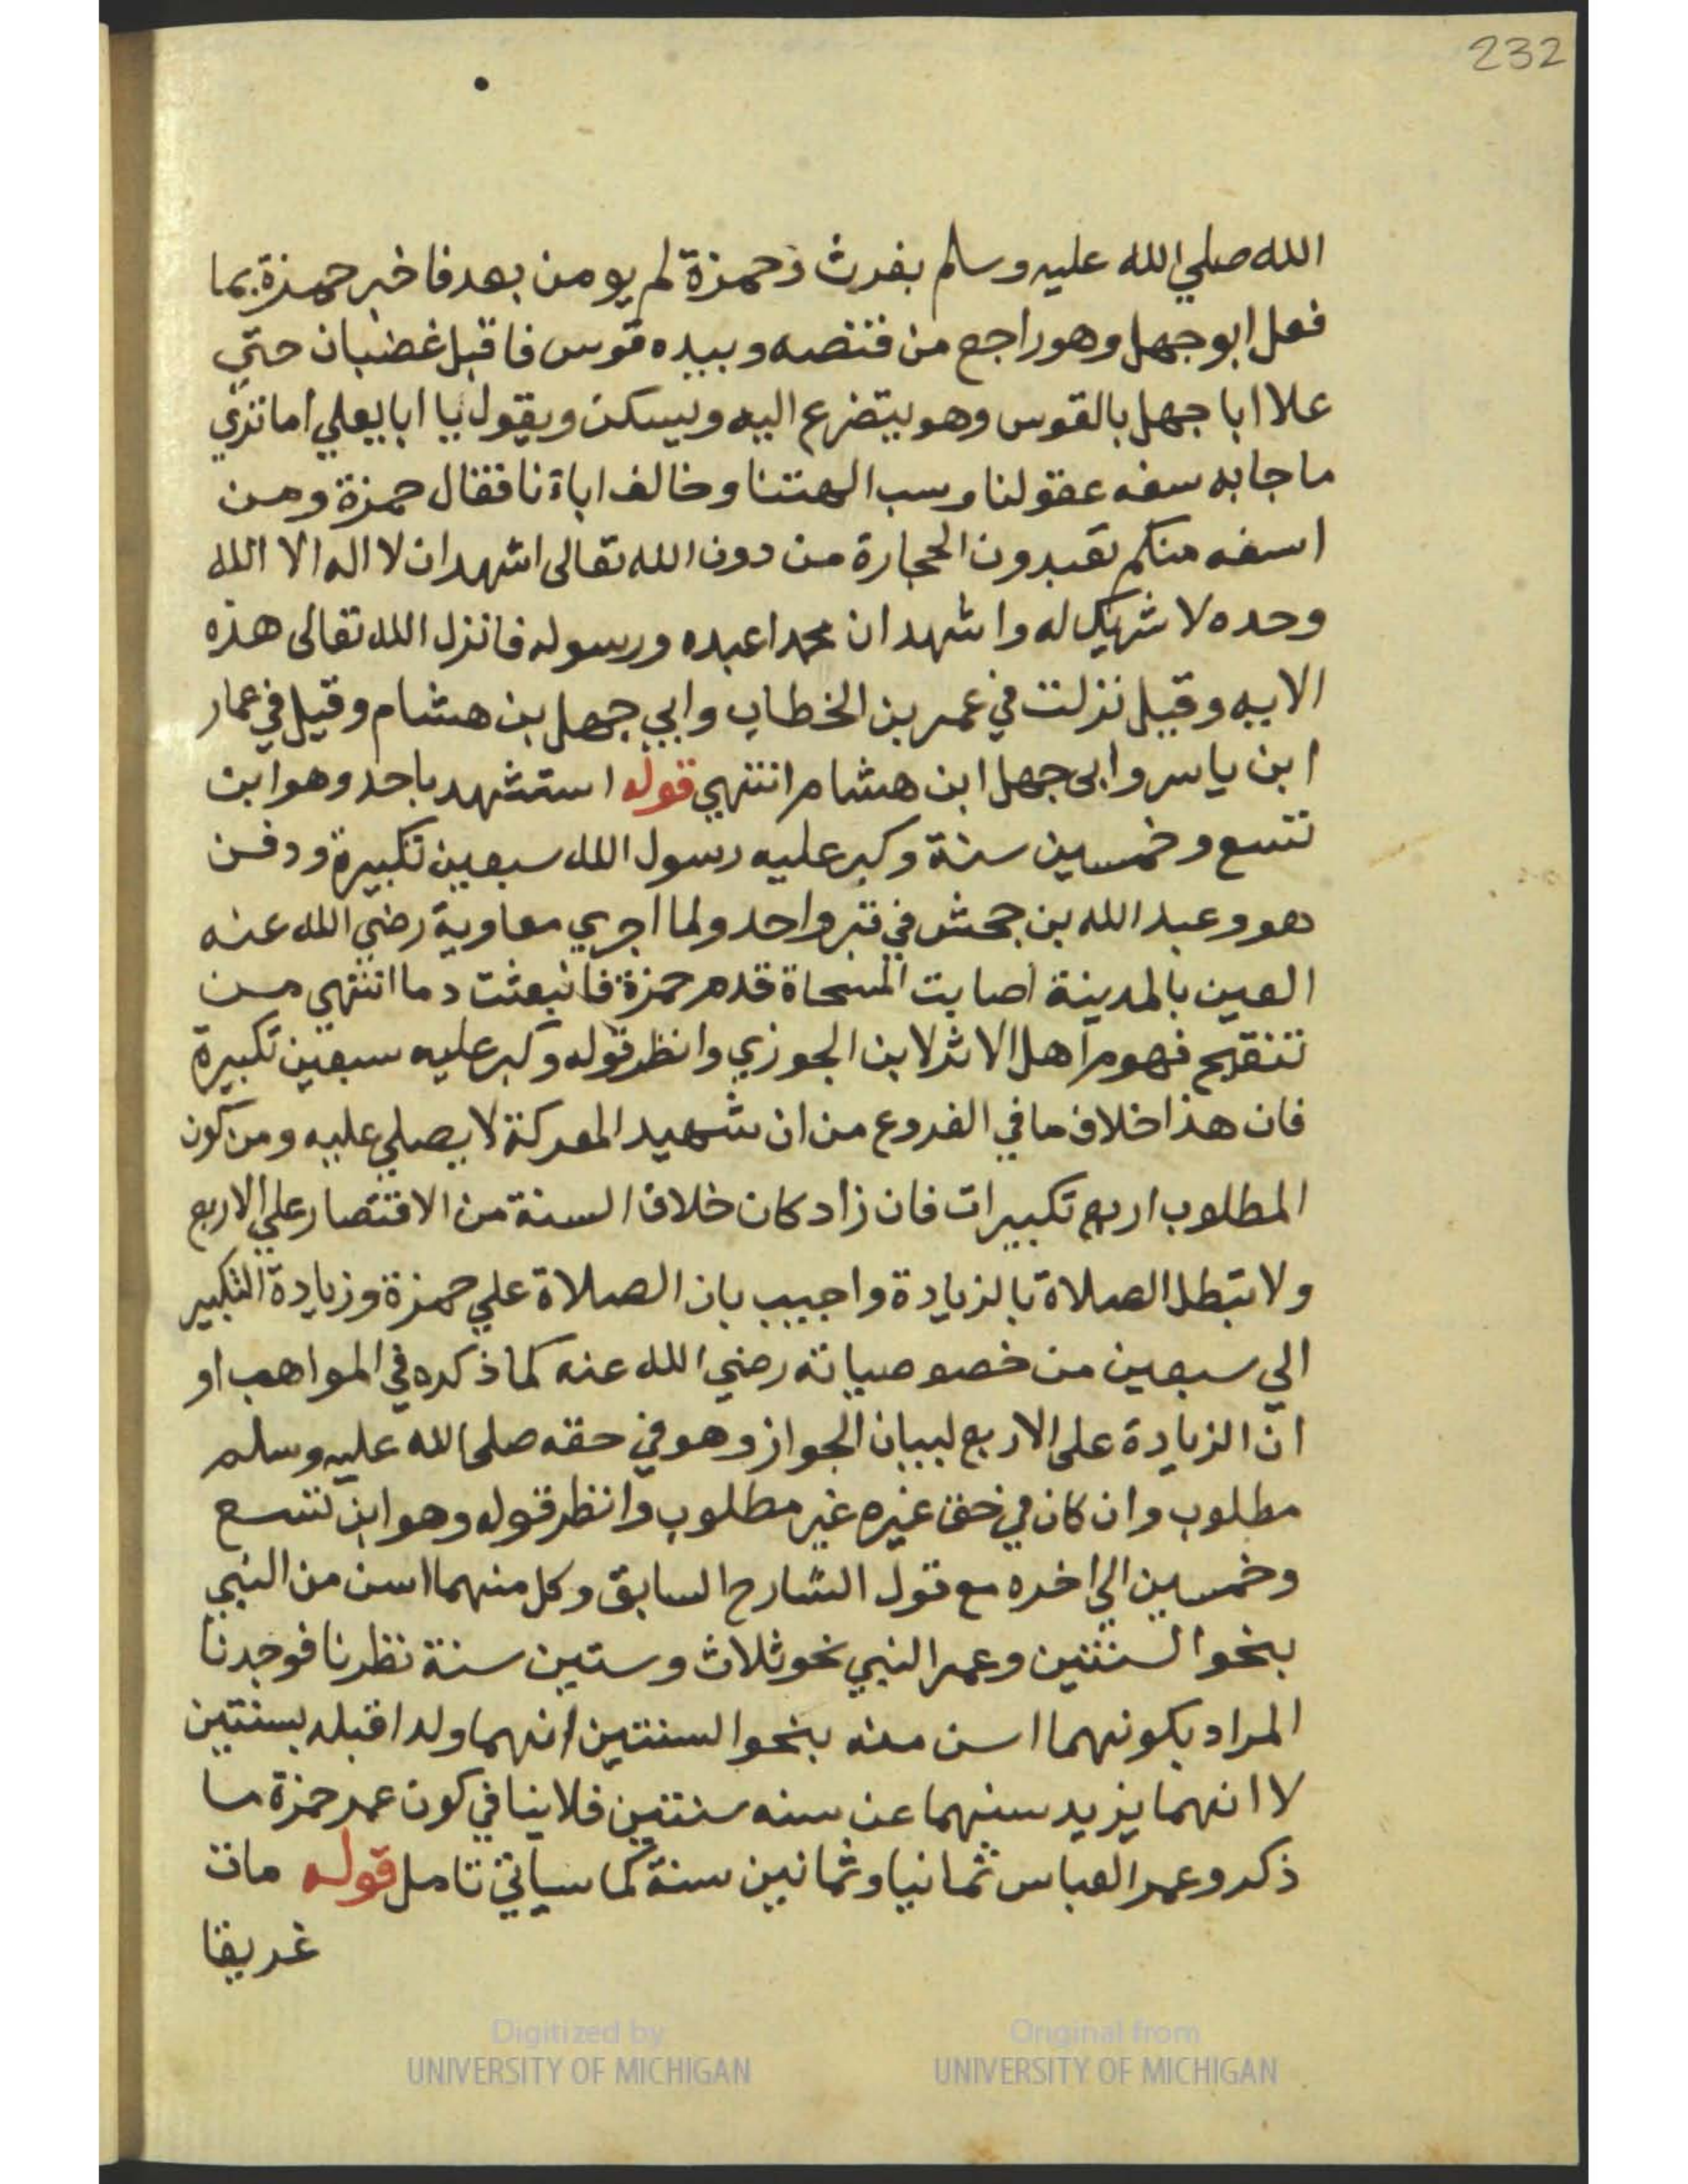 232
الله صلي الله عليه وسلم بفرث وحمزة لم يومن بعد فاخبر حمزة بما
فعل ابو جهل وهو راجع من قنصه وبيده قوس فاقبل غضبان حتي
علا ابا جهل بالقوس وهو يتضرع اليه ويسكن ويقول يا ابا يعلي اما تري
ما جا به سفه عقولنا وسب الهتنا وخالف اباة نا فقال حمزة ومن
اسفه منكم تعبدون الحجارة من دون الله تعالى اشهد ان لا اله الا الله
وحده لا شريك له واشهد ان محمدا عبده ورسوله فانزل الله تعالى هذه
الايه وقيل نزلت في عمر بن الخطاب وابي جهل بن هشام وقيل في عمار
ابن ياسر وابى جهل ابن هشام انتهي قوله استشهد باحد وهو ابن
تسع وخمسين سنة وكبر عليه رسول الله سبعين تكبيرة ودفن
هو وعبد الله بن جحش في قبر واحد ولما اجري معاوية رضي الله عنه
العين بالمدينة اصابت المسحاة قدم حمزة فانبعثت دما انتهي من
تنقيح فهوم اهل الاثر لابن الجوزي وانظر قوله وكبر عليه سبعين تكبيرة
فان هذا خلاف ما في الفروع من ان شهيد المعركة لا يصلي عليه ومن كون
المطلوب اربع تكبيرات فان زاد كان خلاف السنة من الاقتصار علي الاربع
ولا تبطل الصلاة بالزيادة واجيب بان الصلاة علي حمزة وزيادة التكبير
الي سبعين من خصوصياته رضي الله عنه كما ذكره في المواهب او
ان الزيادة على الاربع لبيان الجواز وهو في حقه صلى الله عليه وسلم
مطلوب وان كان في حق غيره غير مطلوب وانظر قوله وهو ابن تسع
وخمسين الي اخره مع قول الشارح السابق وكل منهما اسن من النبي
بنحو السنتين وعمر النبي نحو ثلاث وستين سنة نظرنا فوجدنا
المراد بكونهما اسن منه بنحو السنتين انهما ولدا قبله بسنتين
لا انهما يزيد سنهما عن سنه سنتين فلا ينافي كون عمر حمزة ما
ذكر وعمر العباس ثمانيا وثمانين سنة كما سياتي تامل قوله مات
غريقا
Digitized by
UNIVERSITY OF MICHIGAN
Original from
UNIVERSITY OF MICHIGAN